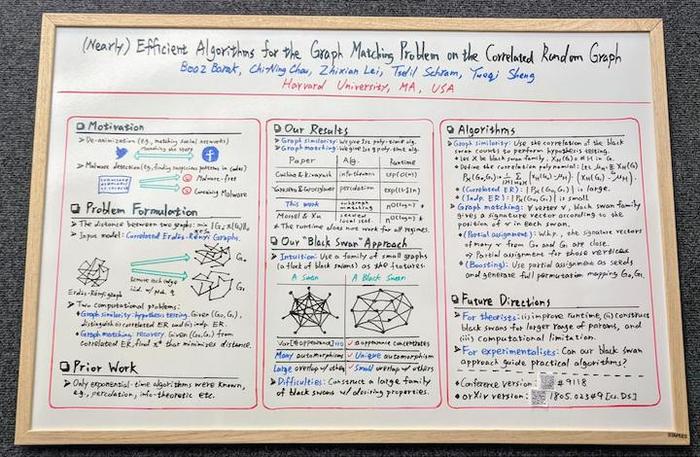 (Nearly) Efficient Algorithms for the Graph Matching Problem on the Correlated Random Graph
Boaz Barak, Chi-Ning Chou, Zhixian Lei, Tselil Schramm, Yueqi Sheng
Harvard University, MA, USA
Motivation
De-anonimization (e.g., matching social networks)
matching the story
Malware detection (e.g., finding suspicious patterns in codes)
Malware-free
Containing Malware
Problem Formulation
The distance between two graphs: min
Input model: Correlated Erdős-Rényi Graphs.
G₀
G₁
Erdős-Rényi graph
Remove each edge
i.i.d. w/
Two computational problems:
Graph similarity: hypothesis testing. Given (G₀,G₁),
distinguish correlated ER and indp. ER.
Graph matching: recovery. Given (G₀,G₁) from
correlated ER, find that minimizes distance.
Prior Work
Only exponential-time algorithms were known,
e.g., percolation, info-theoretic etc.
Our Results
Graph similarity: We give 1st poly-time alg.
Graph matching: We give 1st poly-time alg.
Paper Alg. Runtime
Cullina & Kiyavash info-theoretic exp(O(n))
Yartseva & Grossglauser percolation
This work subgraph matching
Mossel & Xu seeded local stat.
The runtime does not work for all regimes.
Our "Black Swan" Approach
Intuition: Use a family of small graphs
(a flock of black swans) as the features.
A Swan A Black Swan
appearance concentrates
Many automorphism Unique automorphism
Large overlap w/ others Small overlap w/ others
Difficulties: Construct a large family
of black swans w/ desiring properties.
Algorithms
Graph similarity: Use the correlation of the black
swan counts to perform hypothesis testing.
Let X be black swan family.
Define the correlation polynomial:
(Correlated ER): is large.
(Indp. ER): is small.
Graph matching: vertex v, black swan family
gives a signature vector according to the
position of v in each swan.
(Partial assignment): W.h.p., the signature vectors
of many v from G₀ and G₁ are close.
⇒ Partial assignment for those vertices
(Boosting): Use partial assignment as seeds
and generate full permutation mapping G₀, G₁.
Future Directions
For theorists: (i) improve runtime, (ii) construct
black swans for larger range of params, and
(iii) computational limitation.
For experimentalists: Can our black swan
approach guide practical algorithms?
Conference version: #9118
arXiv version: 1805.02349 [cs.DS]
STAPLES